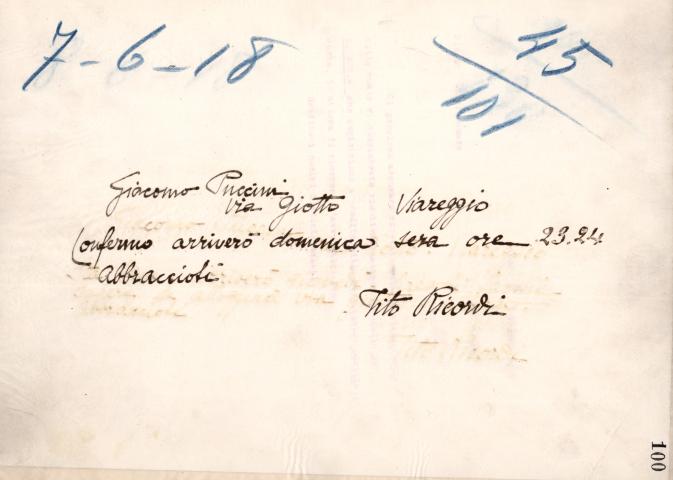 7-6-18
45
101
Giacomo Puccini
Via Giotto Viareggio
Confermo arriverò domenica sera ore 23.24
Abbraccioti
Tito Ricordi
100